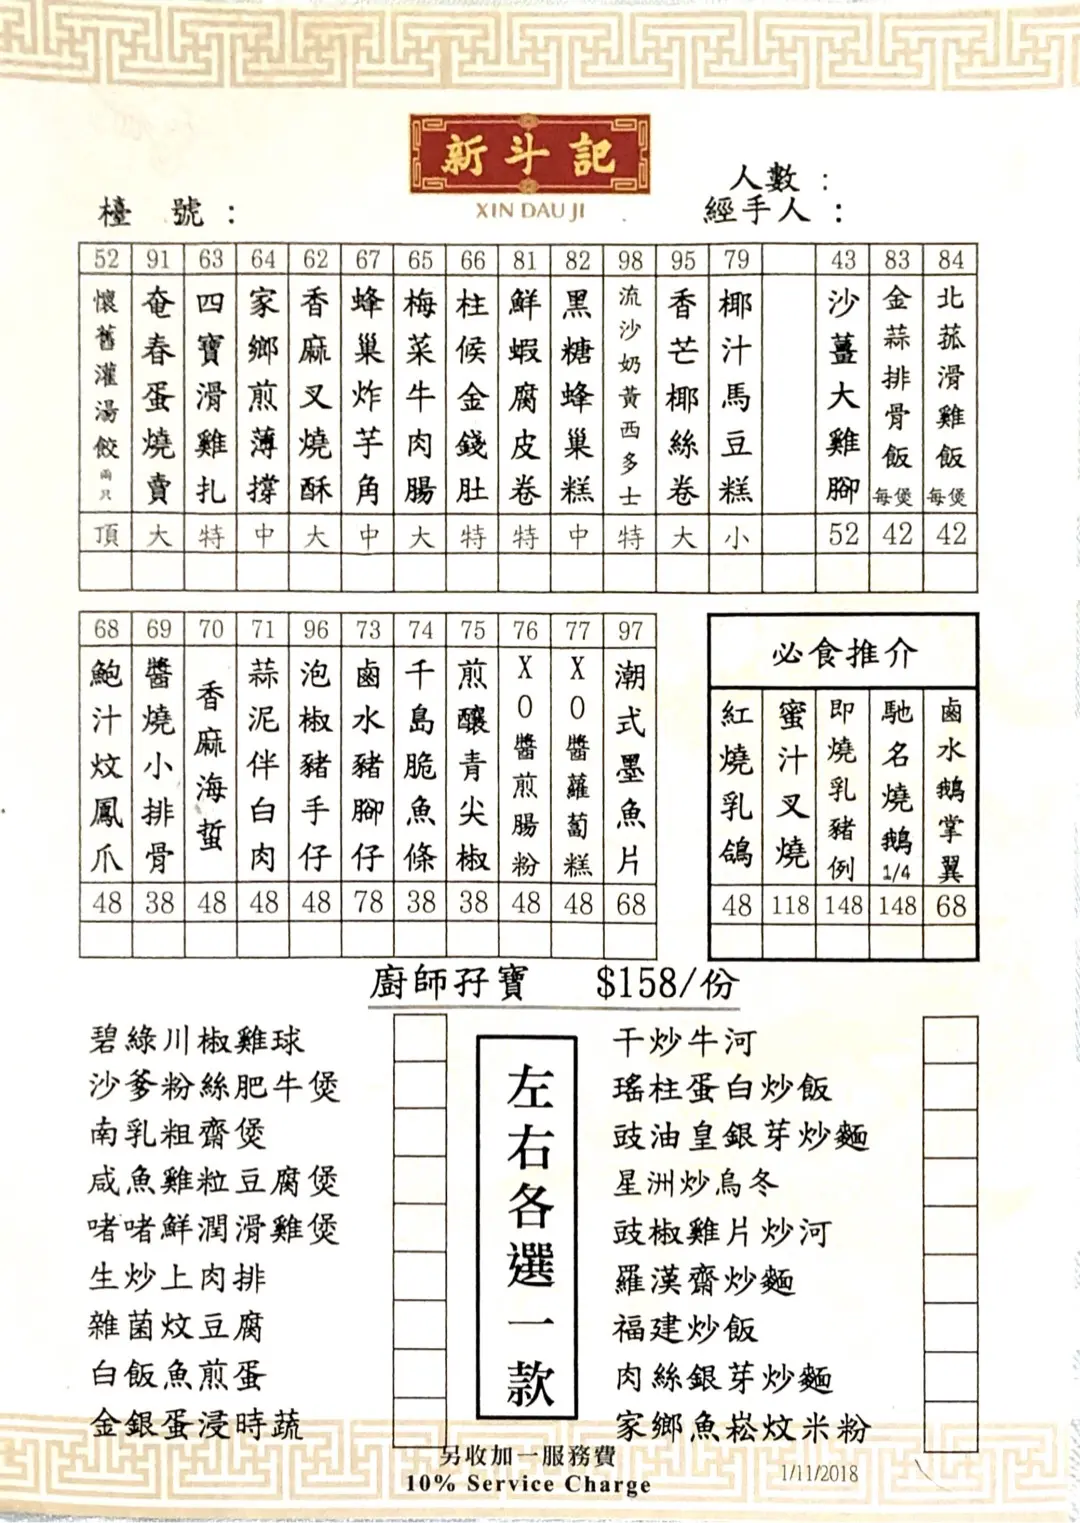 新斗記
XIN DAU JI
人數：
檯 號：
經手人：
52 91 63 64 62 67 65 66 81 82 98 95 79 43 83 84
懷舊灌湯餃兩只
奄春蛋燒賣
四寶滑雞扎
家鄉煎薄撐
香麻叉燒酥
蜂巢炸芋角
梅菜牛肉腸
柱候金錢肚
鮮蝦腐皮卷
黑糖蜂巢糕
流沙奶黃西多士
香芒椰絲卷
椰汁馬豆糕
沙薑大雞腳
金蒜排骨飯每煲
北菰滑雞飯每煲
頂 大 特 中 大 中 大 特 特 中 特 大 小 52 42 42
68 69 70 71 96 73 74 75 76 77 97
鮑汁炆鳳爪
醬燒小排骨
香麻海蜇
蒜泥伴白肉
泡椒豬手仔
鹵水豬腳仔
千島脆魚條
煎釀青尖椒
XO醬煎腸粉
XO醬蘿蔔糕
潮式墨魚片
48 38 48 48 48 78 38 38 48 48 68
必食推介
紅燒乳鴿
蜜汁叉燒
即燒乳豬例
馳名燒鵝1/4
鹵水鵝掌翼
48 118 148 148 68
廚師孖寶 $158/份
碧綠川椒雞球
沙爹粉絲肥牛煲
南乳粗齋煲
咸魚雞粒豆腐煲
啫啫鮮潤滑雞煲
生炒上肉排
雜菌炆豆腐
白飯魚煎蛋
金銀蛋浸時蔬
左右各選一款
干炒牛河
瑤柱蛋白炒飯
豉油皇銀芽炒麵
星洲炒烏冬
豉椒雞片炒河
羅漢齋炒麵
福建炒飯
肉絲銀芽炒麵
家鄉魚崧炆米粉
另收加一服務費
10% Service Charge
1/11/2018